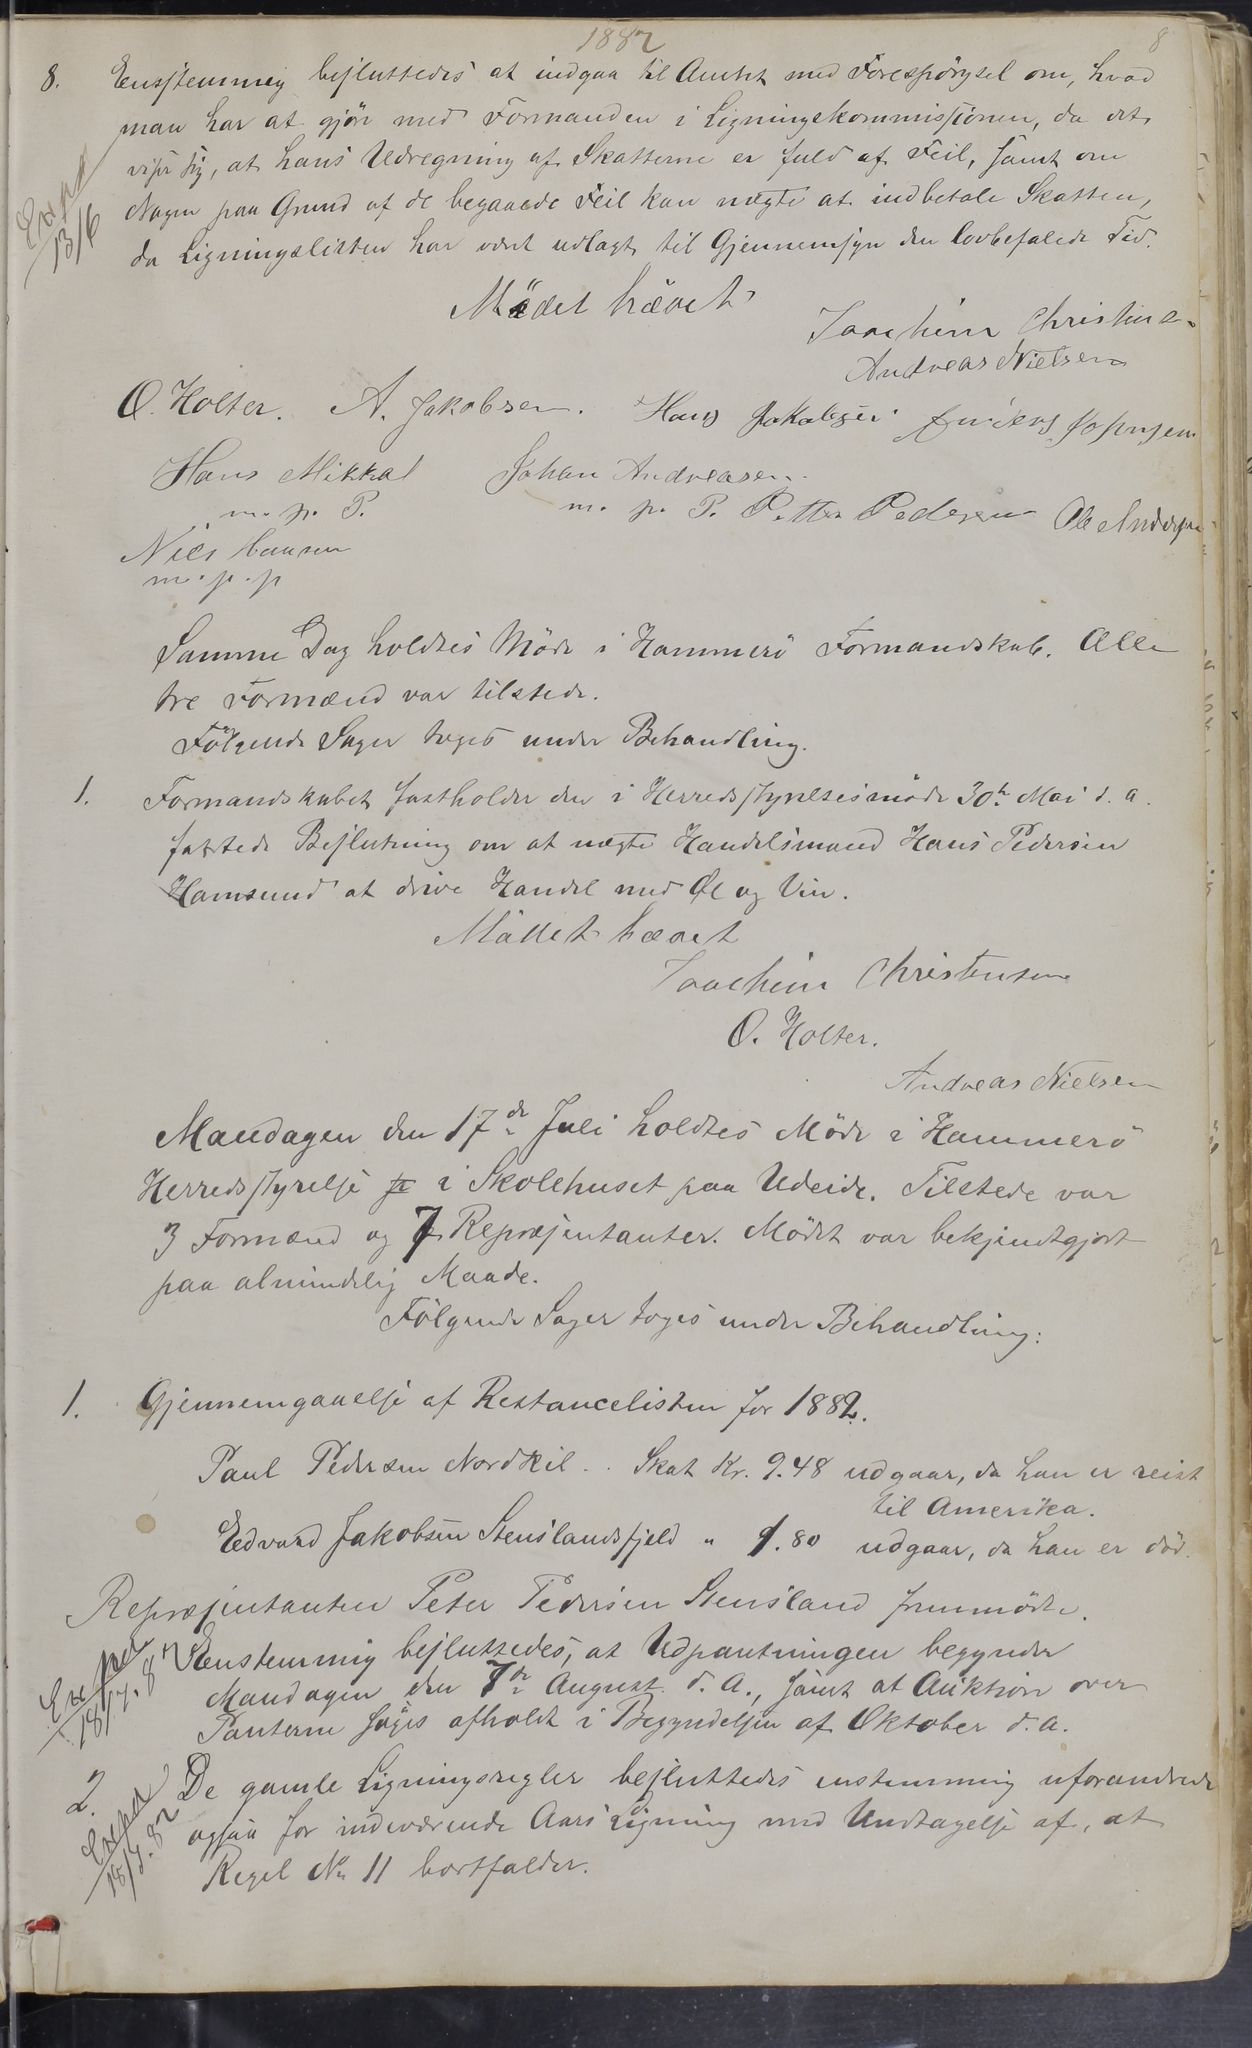 1882
8
8. Eensstemmig besluttedes at indgaa til Amtet med Forespörgsel om, hvad
man har at gjöre med Formanden i Ligningskommissionen, da det
viser sig, at hans Udregning af Skatterne er fuld af Feil, samt om
Nogen paa Grund af de begaaede Feil kan nægte at indbetale Skatten,
da Ligningslisten har været udlagt til Gjennemsyn den lovbefalede Tid.
Exped
13/6
Mödet hævet
Joachim Christens.
Andreas Nielsen
O. Holter. A. Jakobsen. Hans Jakobsen Anders Johnsen
Hans Mikkal Johan Andreasen.
m. p. P. m. p. P. Petter Pedersen Ole Andersen
Nils Hansen
m. p. p
Samme Dag holdtes Möde i Hammerö Formandskab. Alle
tre Formænd var tilstede.
Fölgende Sager toges under Behandling.
1. Formandskabet fastholder den i Herredsstyrelsesmöde 30te Mai d. a.
fattede Beslutning om at nægte Handelsmand Hans Pedersen
Hamsund at drive Handel med Öl og Vin.
Mödet hævet
Joachim Christensen
O. Holter.
Andreas Nielsen
Mandagen den 17de Juli holdtes Möde i Hammerö
Herredsstyrelse i Skolehuset paa Udeide. Tilstede var
3 Formænd og 7 Repræsentanter. Mödet var bekjendtgjort
paa almindelig Maade.
Fölgende Sager toges under Behandling:
1. Gjennemgaaelse af Restancelisten for 1882.
Paul Pedersen Nordkil .. Skat Kr. 9.48 udgaar, da han er reist
til Amerika.
Edvard Jakobsen Stenslandsfjeld " 1.80 udgaar, da han er död.
Repræsentanten Peter Pedersen Stensland fremmödte.
Eenstemmig besluttedes, at Udpantningen begynder
Mandagen den 7de August d. A., samt at Auktion over
Panterne söges afholdt i Begyndelsen af Oktober d. a.
Exped
18/7. 82
2. De gamle Ligningsregler besluttedes enstemmig uforandrede
ogsaa for indeværende Aars Ligning med Undtagelse af, at
Regel No 11 bortfalder.
Exped
18/7. 82